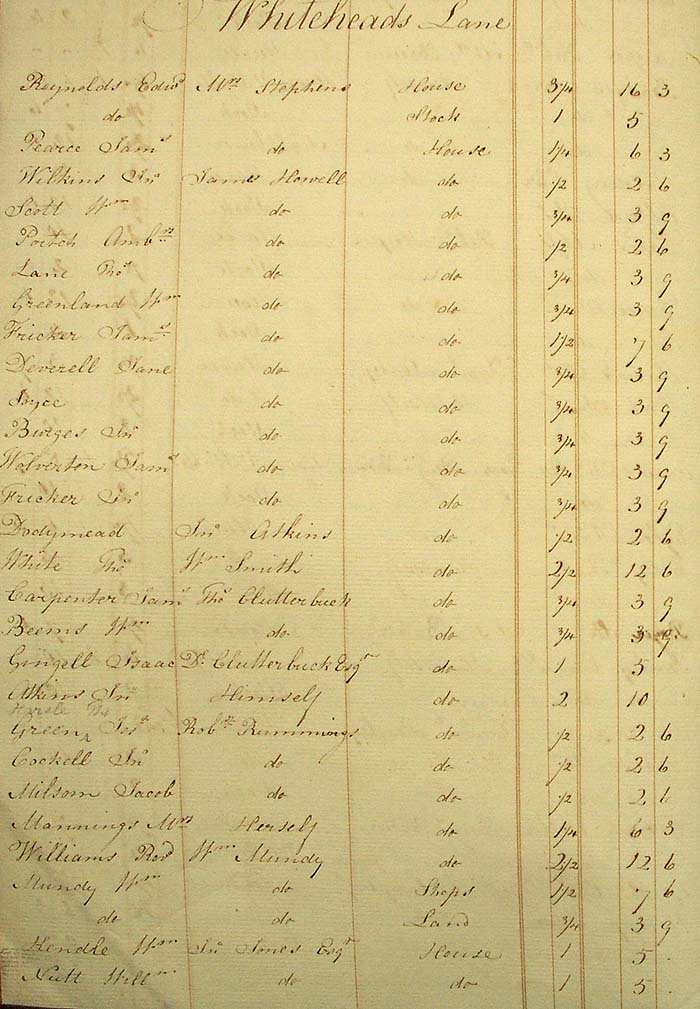 Whiteheads Lane
Reynolds Edwd Mrs Stephens House 3/4 16 3
do Stock 1 5
Pearce Saml do House 1/4 6 3
Wilkins Jno James Howell do 1/2 2 6
Scott Wm do do 3/4 3 9
Portch Ambrs do do 1/2 2 6
Lane Thos do do 3/4 3 9
Greenland Wm do do 3/4 3 9
Fricker Saml do do 1 1/2 7 6
Deverell Jane do do 3/4 3 9
Joyce do do 3/4 3 9
Burges Jno do do 3/4 3 9
Wolverton Saml do do 3/4 3 9
Fricker Jno do do 3/4 3 9
Dodymead Jno Atkins do 1/2 2 6
White Thos Wm Smith do 2 1/2 12 6
Carpenter Saml Thos Clutterbuck do 3/4 3 9
Beems Wm do do 3/4 3 9
Gingell Isaac Dl Clutterbuck Esqr do 1 5
Atkins Jno Himself do 2 10
Thos
Green Jos Robt Rummings do 1/2 2 6
Cockell Jno do do 1/2 2 6
Milsom Jacob do do 1/2 2 6
Mannings Mrs Herself do 1 1/4 6 3
Williams Rod Wm Mundy do 2 1/2 12 6
Mundy Wm do Shops 1 1/2 7 6
do do Land 3/4 3 9
Kendle Wm Jno Jones Esqr House 1 5 .
Nutt Willm do do 1 5 .